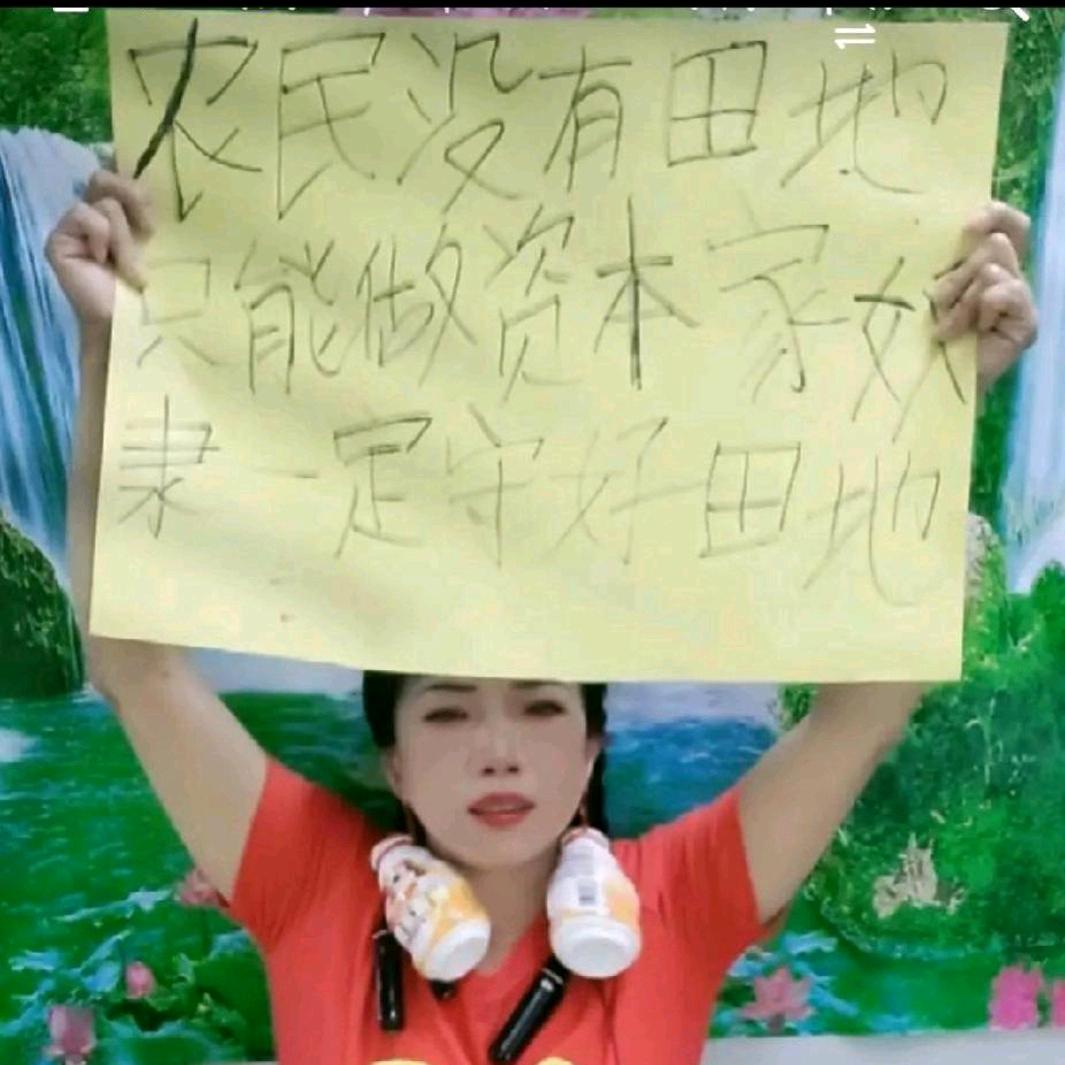 农民没有田地
只能做资本家奴
隶一定守好田地